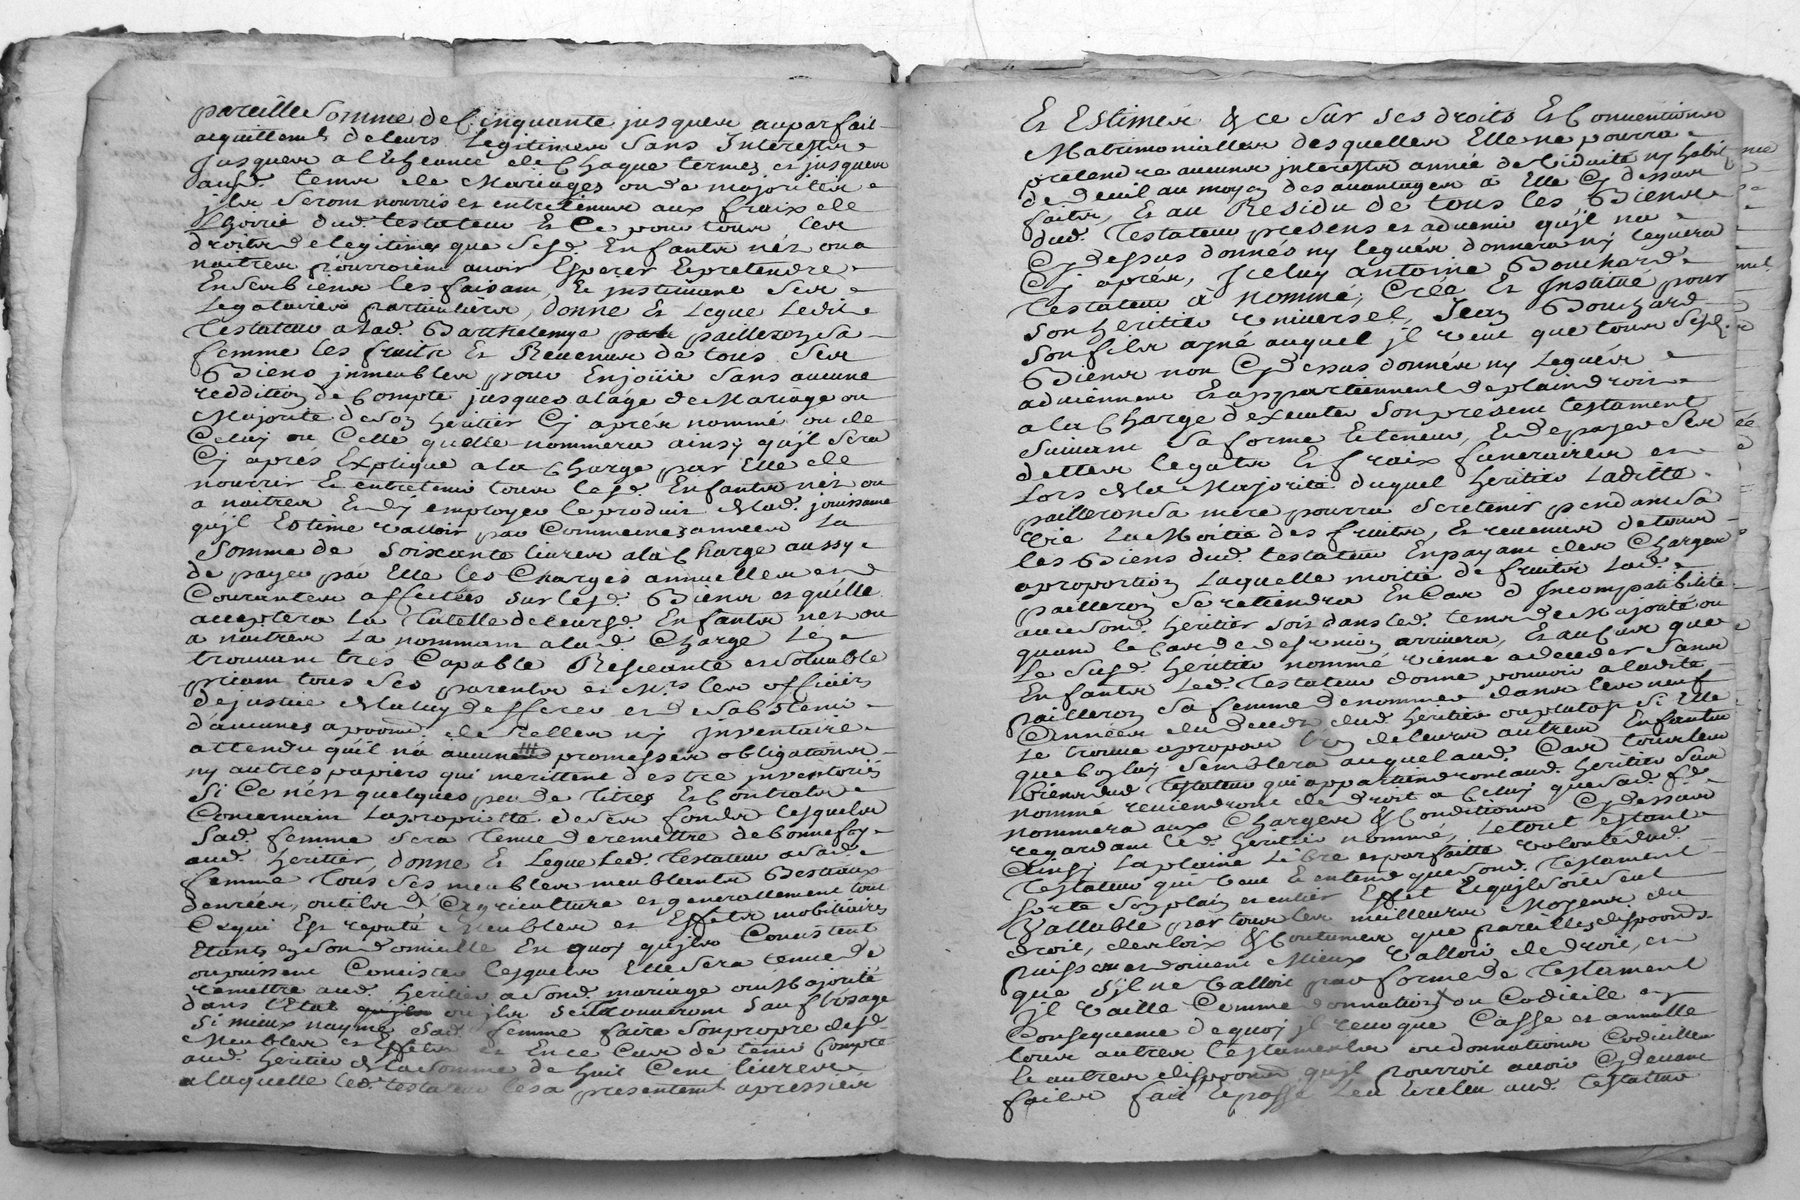 pareille somme de Cinquante jusques auparfait
acquittemt. de leurs Legitimes sans Interestz
Jusques a lEcheance de Chaque termes et jusques
ausd. tems de Mariages ou de majorites
jls seront nourris et entretenus aux fraix de
lhoirie dud. testateur Et Ce pour tous les
droits de legitimes que sesd. Enfants nés ou a
naitres pourroient avoir Esperer Et pretendre
En ses biens les faisant, Et jnstituant ses
Legataires particuliers, donne Et Legue Ledit
Testateur a lad. Barthelemye pailleron sa
femme les fruits Et Revenus de tous ses
Biens jmmeubles pour En joüir sans aucune
reddition de Compte jusques a lage de Mariage ou
Majorite de son heritier Cy aprés nommé ou de
Celuy ou Celle quelle nommera ainsy quil sera
Cy aprés Expliqué a la Charge par Elle de
nourrir Et entretenir tous lesd. Enfants nés ou
a naitres Et dy employer le produit de lad. jouissance
quil Estime valloir par Communes années La
Somme de soixante livres a la Charge aussy
de payer par Elle les Charges annuelles et
Courantes affectées sur lesd. Biens et quelle
acceptera La Tutelle de leursd. Enfants nés ou
a naitres La nommant a lad. Charge La
trouvant tres Capable Reseante et soluable
priant tous ses parents et Mrs. les officiers
de justice de la luy defferer et de sabstenir
daucunes apposon. de scellés ny inventaire
attendu quil na aucunes promesses obligations
ny autres papiers qui merittent destre jnventoriés
si Ce nest quelques peu de titres Et Contrats
Concernant La proprieté de ses fonds lesquels
sad. femme sera tenue de remettre de bonne foy
aud. heritier, donne Et Legue Led. Testateur a sad.
femme tous ses meubles meublants Bestiaux
denrées, outils d Agriculture et generallement tout
Ce qui Est reputé Meubles et Effets mobiliaires
Etants en son domicille En quoy quils Consistent
ou puissent Consister lesquels Elle sera tenue de
remettre aud. heritier a sond. mariage ou Majorité
dans lEtat ou jls se trouveront sauf lusage
si mieux nayme sad. femme faire son propre desd.
Meubles et Effets et En ce Cas de tenir Compte
aud. heritier de la somme de huit Cent livres
a laquelle led. testateur les a presentemt. apressiés
Et Estimés & ce sur ses droits Et Conventions
Matrimonialles desquelles Elle ne pourra
pretendre aucuns interestz année de viduité ny habit
de deuil au moyen des avantages à Elle Cy dessus
faits, Et au Residu de tous les Biens
dud. Testateur presens et advenir quil na
Cy dessus donnés ny legués donnera ny leguera
Cy aprés, Jceluy antoine Bouchard
Testateur à nommé, Créé Et Institué pour
son heritier Universel, Jean Bouchard
son fils ayné auquel jl veut que tous sesd.
Biens non Cy dessus donnés ny Legués
adviennent Et appartiennent de plain droit
a la Charge dexecuter son present testament
suivant sa forme Et teneur, Et de payer ses
dettes legats Et fraix funeraires et
Lors de la Majorité duquel heritier Laditte
pailleron sa mere pourra se retenir pendant sa
vie La Moitié des fruits, Et revenus de tous
les Biens dud. testateur En payant des Charges
a proportion Laquelle moitié de fruits Lad.
pailleron se retiendra En Cas d Incompatibilité
avec sond. heritier soit dans led. tems de Majorité ou
quand le Cas de desunion arrivera, Et au Cas que
Le susd. heritier nommé vienne a deceder sans
Enfants Led. Testateur donne pouvoir a ladite
pailleron sa femme de nommer dans les neuf
Années du decedz dud. heritier ou plutost si Elle
Le trouve a propos de leurs autres Enfants
que bon luy semblera auquel aud. Cas tous les
biens dud. Testateur qui appartiendront aud. heritier sus
nommé reviendront de droit a Celuy que sad. fe.
nommera aux Charges & Conditions Cy dessus
regardant led. heritier nommé, Le tout Estant
Ainsy La plaine Libre et parfaitte volonté dud.
Testateur qui veut Et entend que sond. Testament
sorte son plain et entier Effet Et quil soit seul
Vallable par tous les meilleurs Moyens de
droit, des loix & Coutumes que pareilles disposons.
puissent et doivent Mieux valloir de droit, et
que sil ne valloit par forme de Testament
jl vaille Comme donnation ou Codicile et
Consequence de quoy jl revoque Casse et annulle
tous autres Testaments ou donnations Codicilles
Et autres disposons. quil pourroit avoir Cy devant
faits fait Et passé Leu Et releu aud. Testateur